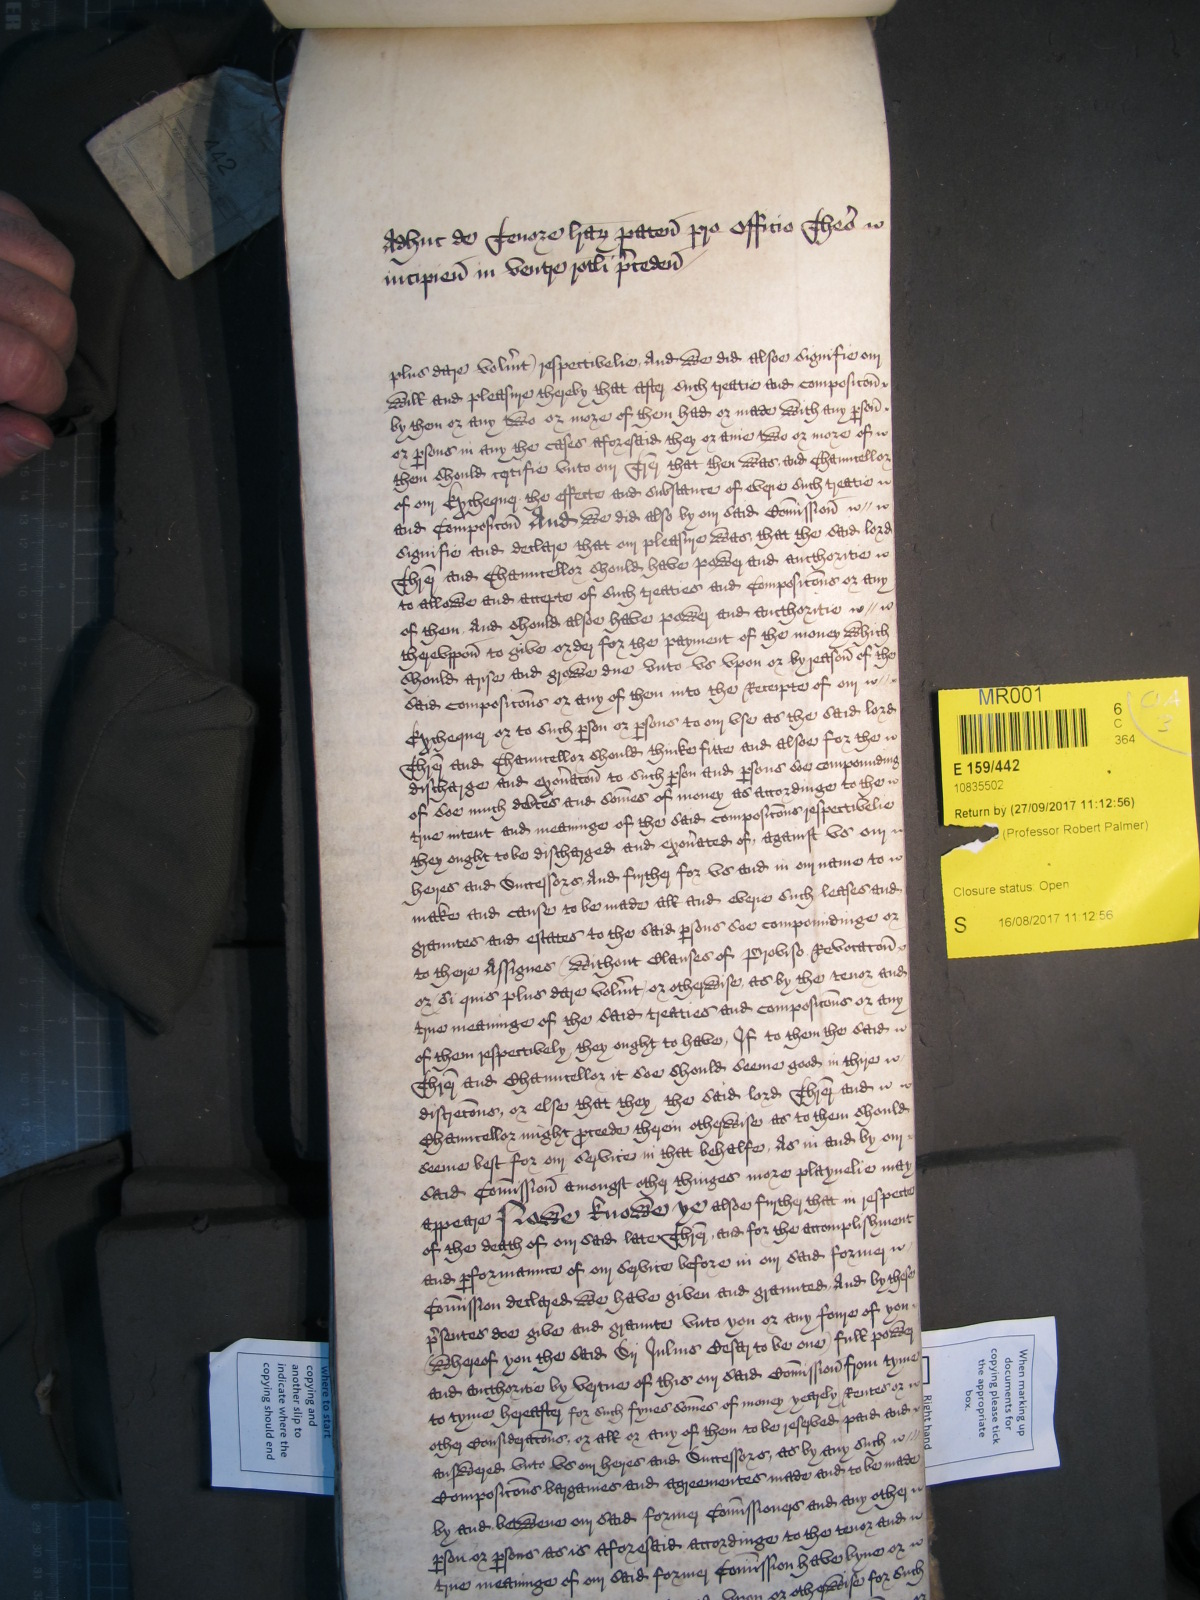 Adhuc de Tenore har paten pro Officio Thes
incipien in ventre rotli preceden
plus dare volunt) respectivelie, And we did alsoe signifie our
will and pleasure thereby that after such treatie and composicon
by them or any two or more of them had or made with any pson
or psons in any the cases aforesaid they or anie two or more of
them should certifie unto our Threr that then was, and Chauncellor
of our Exchequer the effecte and substance of everie such treatie
and Composicon And we did also by our said Comission
signifie and declare that our pleasure was, that the said lord
Threr and Chauncellor should have power and authoritie
to allowe and accepte of such treaties and Composicons or any
of them. And should alsoe have power and authoritie
thereuppon to give order for the payment of the money which
should arise and growe due unto us upon or by reason of the
said composicons or any of them into the Receipte of our
Exchequer or to such pson or psons to our use as the said lord
Threr and Chauncellor should thinke fitte and alsoe for the
discharge and exoneracon to such pson and psons soe compounding
of soe much debtes and somes of money as accordinge to the
true intent and meaninge of the said composicons respectivelie
they ought to be discharged and exonerated of, against us our
heires and Successors, And further for us and in our name to
make and cause to be made all and everie such leases and
grauntes and estates to the said psons soe compoundinge or
to there Assignes (without Clauses of Proviso Revocacon
or si quis plus dare volunt) or otherwise, as by the tenor and
true meaninge of the said treaties and composicons or any
of them respectively, they ought to have, If to them the said
Threr and Chauncellor it soe should seeme good in their
discrecons, or else that they the said lord Threr and
Chauncellor might pceede therein otherwise as to them should
seeme best for our service in that behalfe, As in and by our
said Comission amongst other thinges more playnelie may
appeare Nowe knowe ye alsoe further that in respecte
of the death of our said late Threr, and for the accomplishment
and pformannce of our service before in our said former
Comission declared we have given and graunted, And by these
psentes doe give and graunte unto you or any fowre of you
(whereof you the said Sir Julius Cesar to be one) full power
and authoritie by vertue of this our said Comission from tyme
to tyme hereafter for such fynes somes of money yearely Rentes or
other Consideracons, or all or any of them to be reserved paid and
answered unto us our heires and Successors, as by any such
Composicons bargaines and agreementes made and to be made
by and betwene our said former Comissioners and any other
pson or psons as is aforesaid accordinge to the tenor and
true meaninge of our said former Comission have byne or
upon or otherwise for such
MR001
6
C
364
E 159/442
10835502
Return by (27/09/2017 11:12:56)
(Professor Robert Palmer)
Closure status: Open
S 16/08/2017 11:12:56
142
where to start
copying and
another slip to
indicate where the
copying should end
When marking up
documents for
copying please tick
the appropriate
box.
Right hand